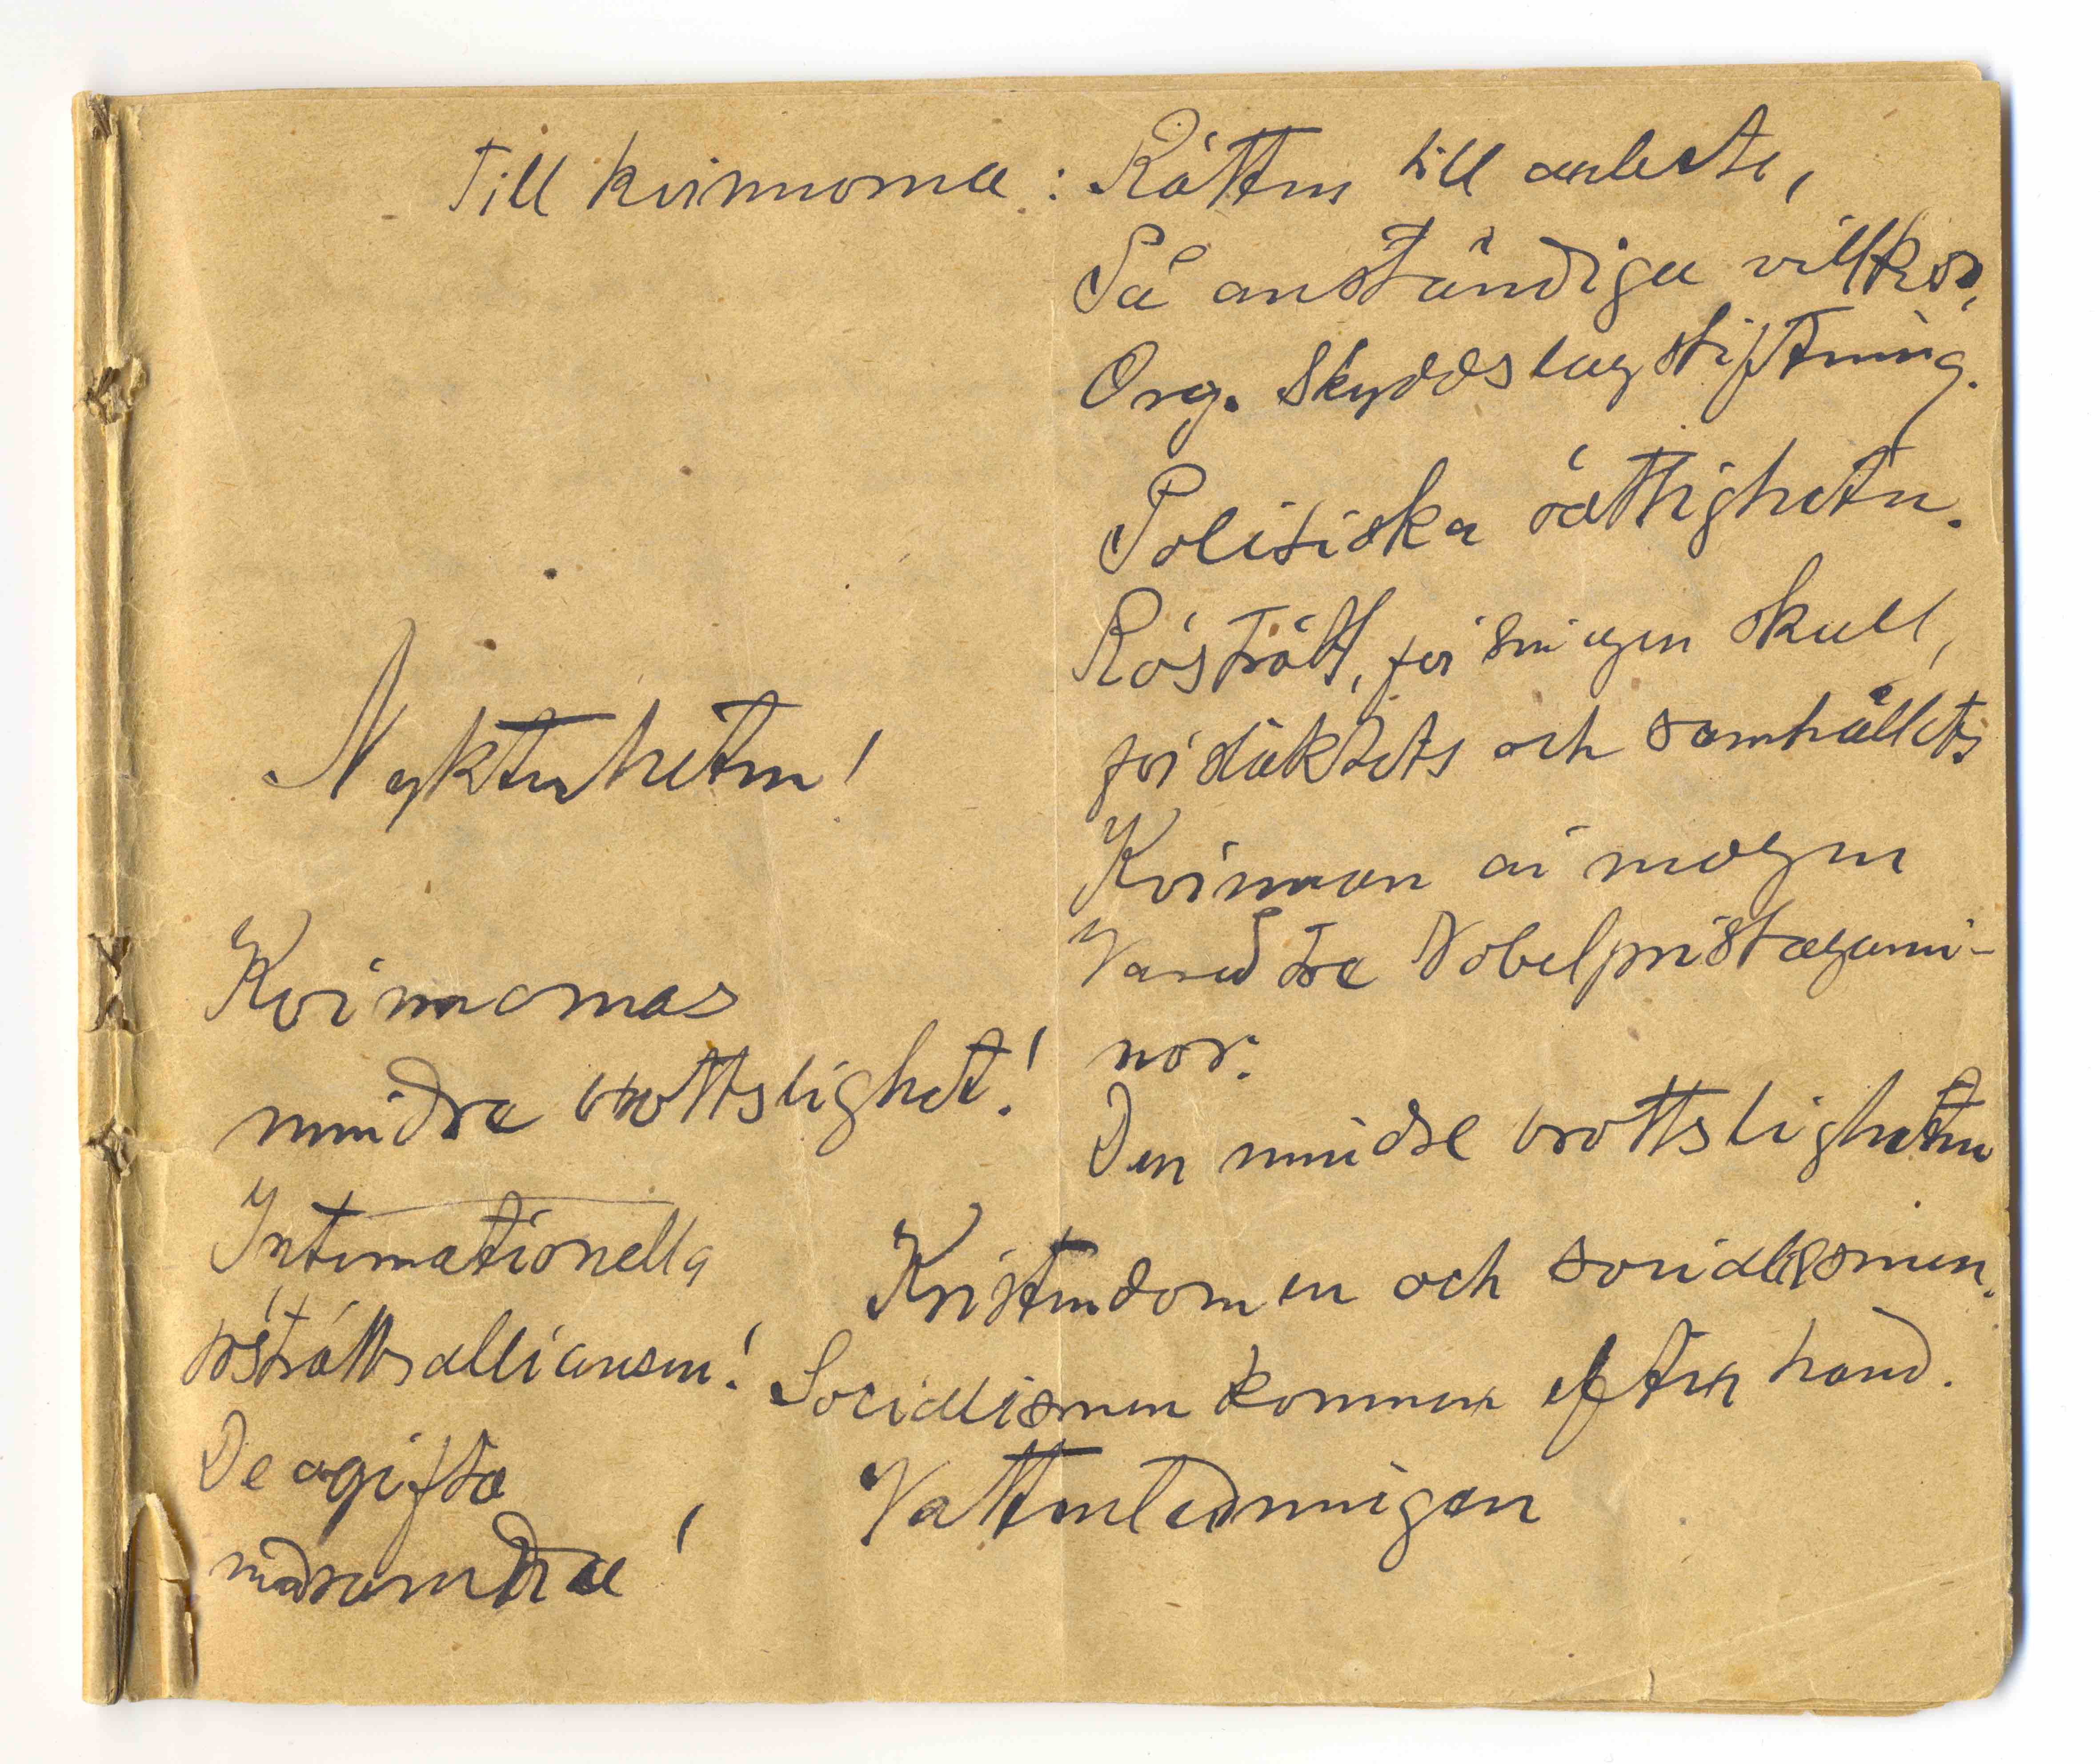 Till kvinnorna : Rätten till arbete,
På anständiga villkor,
Org. Skyddslagstiftning.
Politiska rättigheter.
Rösträtt, för sin egen skull,
för släktets och samhällets
Kvinnan är mogen
Nobelpristagarin-
nor.
Den mindre brottsligheten
Nykterheten!
Kvinnornas
mindre brottslighet!
Internationella
rösträttsalliansen!
De ogifta
mödrarna!
Kristendomen och socialismen.
Socialismen kommer efter hand.
Vattenledningen